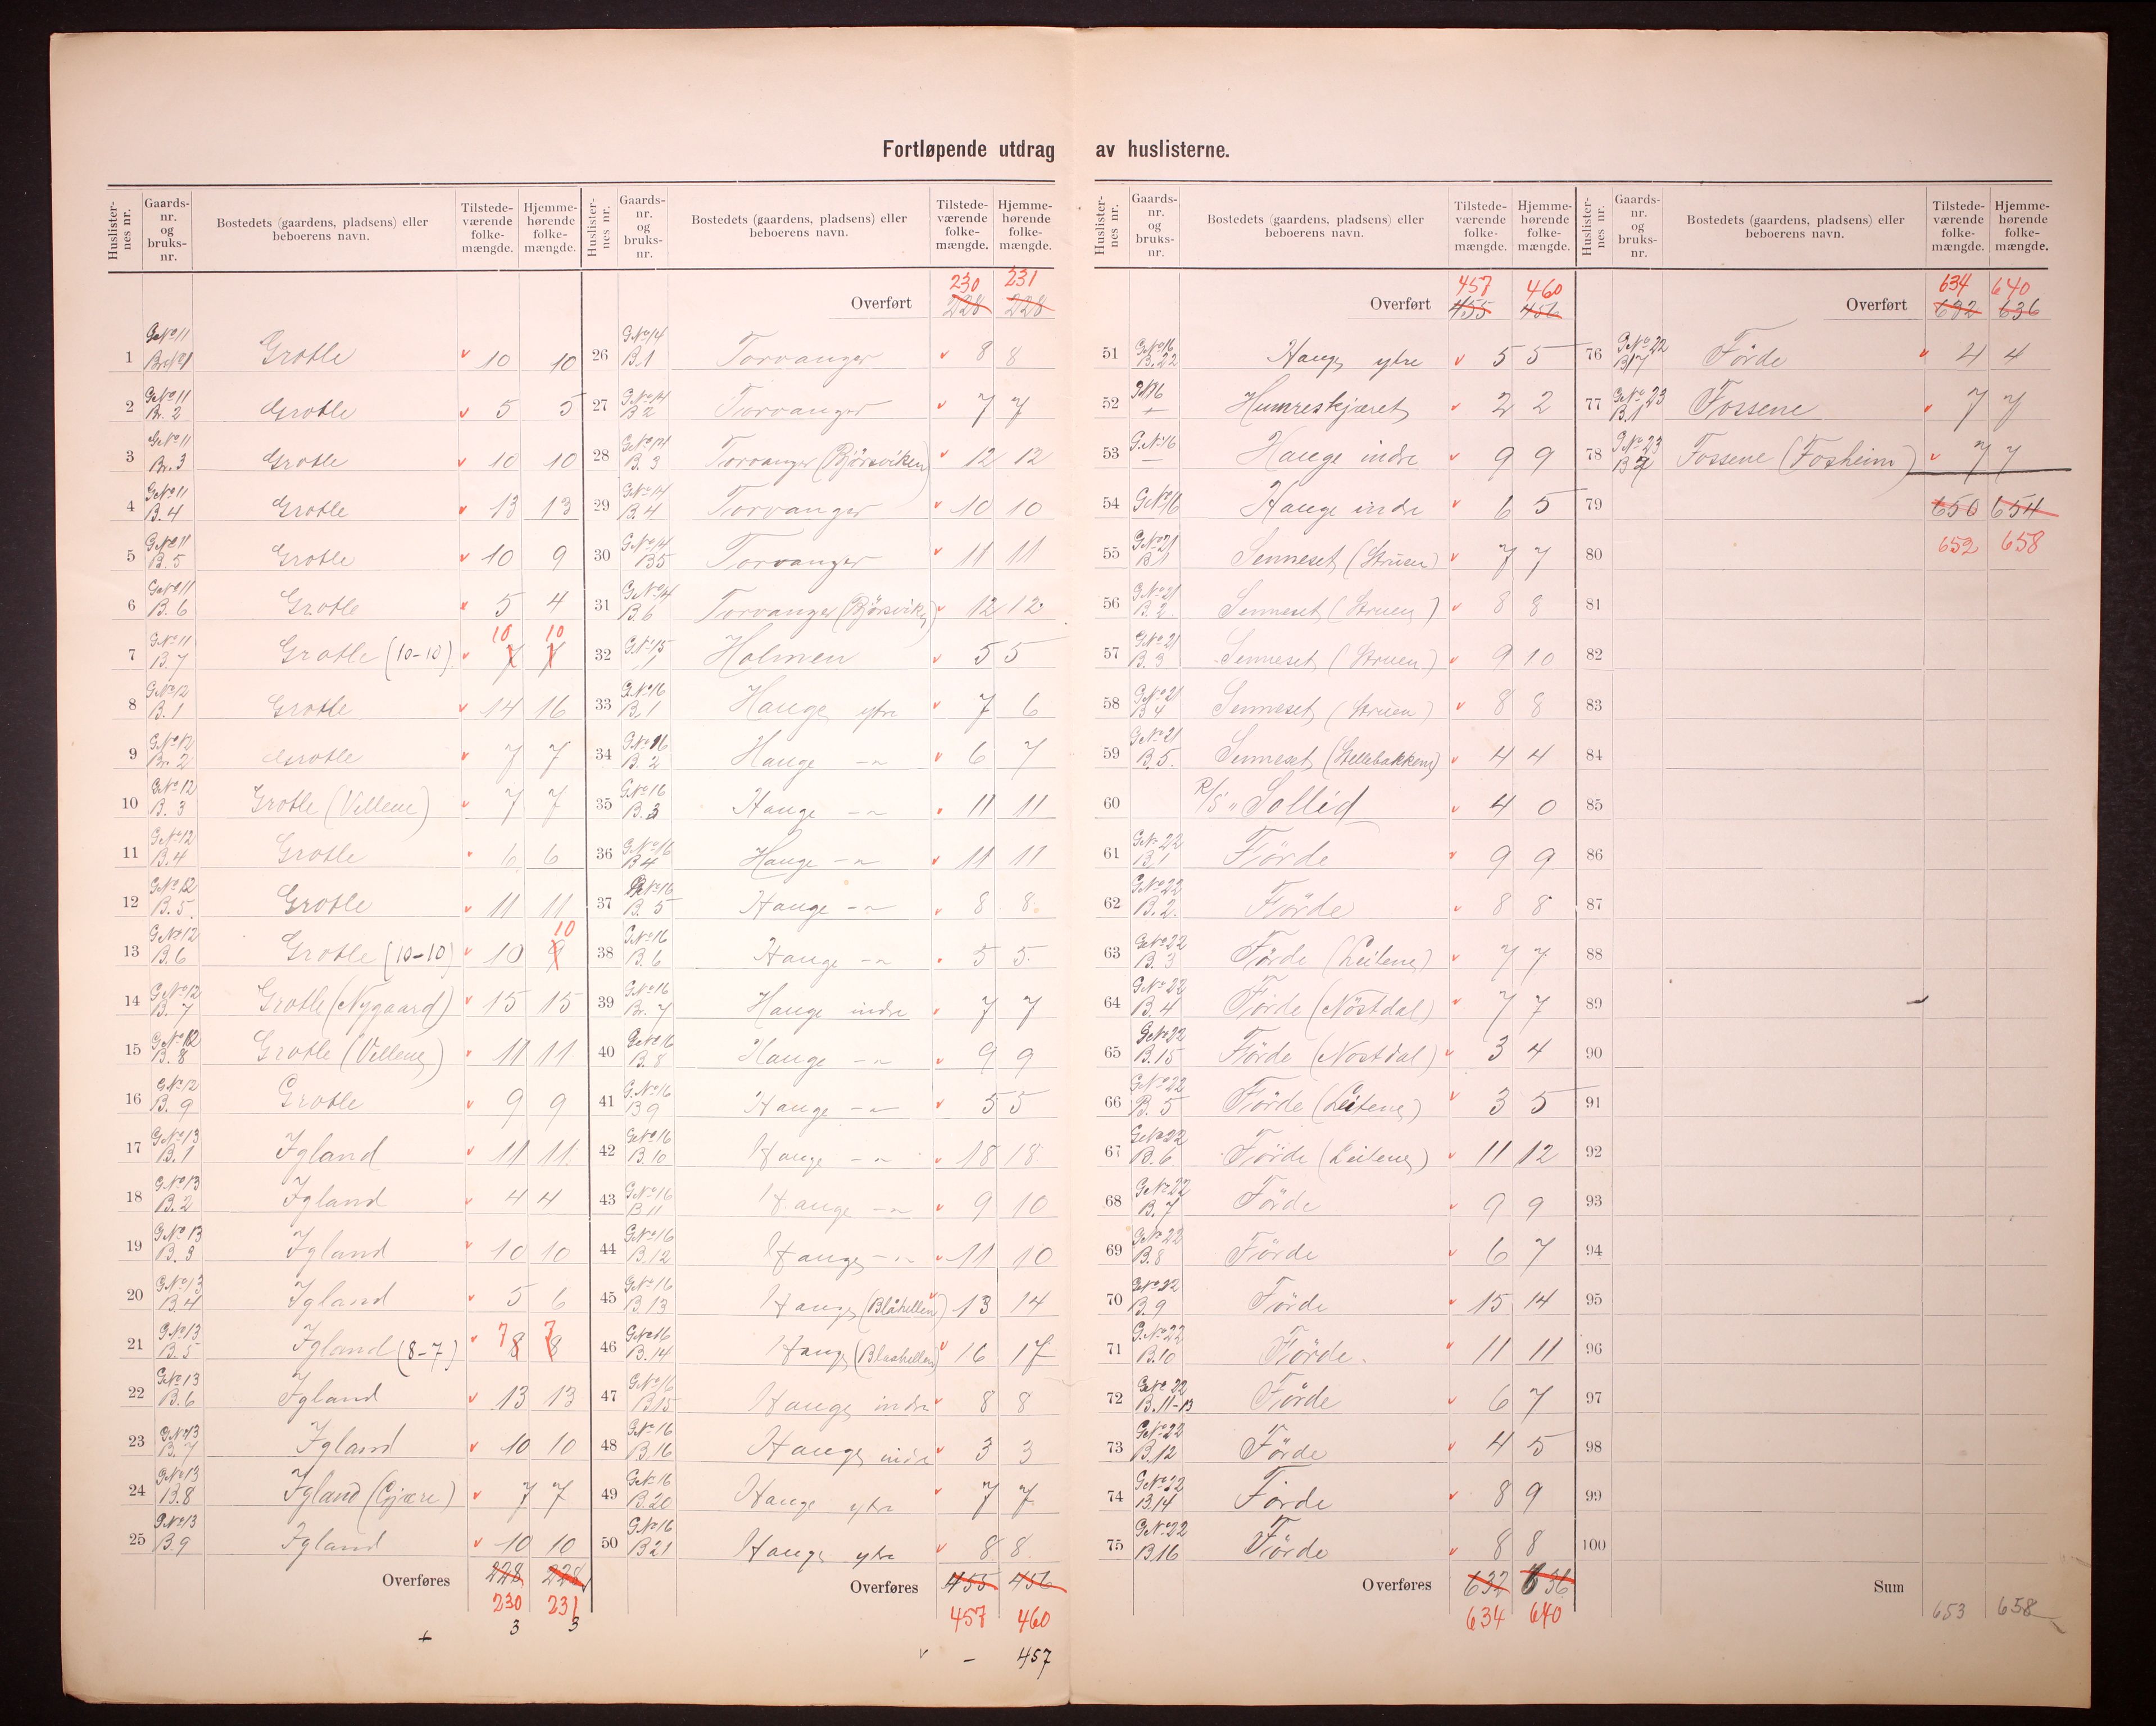 Fortløpende utdrag av huslisterne.
Huslisternes nr. | Gaards-nr. og bruks-nr. | Bostedets (gaardens, pladsens) eller beboerens navn. | Tilstedeværende folkemængde. | Hjemmehørende folkemængde.
1 GNo 11 Br No 1 Grotle v 10 10
2 GNo 11 Br. 2 Grotle v 5 5
3 GNo 11 Br. 3 Grotle v 10 10
4 GNo 11 B. 4 Grotle v 13 13
5 GNo 11 B. 5 Grotle v 10 9
6 GNo 11 B. 6 Grotle 5 4
7 GNo 11 B. 7 Grotle (10-10) v 10 7 10 7
8 GNo 12 B. 1 Grotle v 14 16
9 GNo 12 Br. 2 Grotle v 7 7
10 GNo 12 B. 3 Grotle (Vellene) v 7 7
11 GNo 12 B. 4 Grotle 6 6
12 GNo 12 B. 5 Grotle v 11 11
13 GNo 12 B. 6 Grotle (10-10) v 10 10 9
14 GNo 12 B. 7 Grotle (Nygaard) v 15 15
15 GNo 12 B. 8 Grotle (Vellene) v 11 11
16 GNo 12 B. 9 Grotle v 9 9
17 GNo 13 B. 1 Igland v 11 11
18 GNo 13 B. 2 Igland v 4 4
19 GNo 13 B. 3 Igland v 10 10
20 GNo 13 B. 4 Igland v 5 6
21 GNo 13 B. 5 Igland (8-7) v 7 8 7 8
22 GNo 13 B. 6 Igland v 13 13
23 GNo 13 B. 7 Igland v 10 10
24 GNo 13 B. 8 Igland (Gjære) v 7 7
25 GNo 13 B. 9 Igland v 10 10
Overføres 228 228
230 231
+ 3 3
Huslisternes nr. | Gaards-nr. og bruks-nr. | Bostedets (gaardens, pladsens) eller beboerens navn. | Tilstedeværende folkemængde. | Hjemmehørende folkemængde.
230 231
Overført 228 228
26 GNo 14 B. 1 Torvanger v 8 8
27 GNo 14 B 2 Torvanger v 7 7
28 GNo 14 B. 3 Torvanger (Bjørsviken) v 12 12
29 GNo 14 B. 4 Torvanger v 10 10
30 GNo 14 B 5 Torvanger v 11 11
31 GNo 14 B. 6 Torvanger (Bjørsviken) v 12 12
32 GNo 15 1 Holmen v 5 5
33 GNo 16 B. 1 Hauge ytre v 7 6
34 GNo 16 B. 2 Hauge -"- v 6 7
35 GNo 16 B. 3 Hauge -"- 11 11
36 GNo 16 B 4 Hauge -"- v 11 11
37 GNo 16 B. 5 Hauge -"- v 8 8
38 GNo 16 B. 6 Hauge -"- 5 5
39 GNo 16 Br. 7 Hauge indre 7 7
40 GNo 16 B. 8 Hauge -"- v 9 9
41 GNo 16 B 9 Hauge -"- v 5 5
42 GNo 16 B. 10 Hauge -"- v 18 18
43 GNo 16 B 11 Hauge -"- v 9 10
44 GNo 16 B. 12 Hauge -"- v 11 10
45 GNo 16 B. 13 Hauge (Blåhellen) v 13 14
46 GNo 16 B. 14 Hauge (Blaahellen) v 16 17
47 GNo 16 B 15 Hauge indre v 8 8
48 GNo 16 B. 16 Hauge indre v 3 3
49 GNo 16 B. 20 Hauge ytre v 7 7
50 GNo 16 B 21 Hauge ytre v 8 8
Overføres 455 456
457 460
v - 457
Huslisternes nr. | Gaards-nr. og bruks-nr. | Bostedets (gaardens, pladsens) eller beboerens navn. | Tilstedeværende folkemængde. | Hjemmehørende folkemængde.
457 460
Overført 455 456
51 GNo 16 B. 22 Hauge ytre v 5 5
52 GN 16 + Humreskjæret v 2 2
53 GNo 16 — Hauge indre v 9 9
54 GNo 16 Hauge indre v 6 5
55 GNo 21 B. 1 Senneset (Struen) v 7 7
56 GNo 21 B. 2 Senneset (Struen) v 8 8
57 GNo 21 B. 3 Senneset (Struen) v 9 10
58 GNo 21 B 4 Senneset (Struen) v 8 8
59 GNo 21 B. 5. Senneset (Hellebakken) v 4 4
60 R/S " Sollid v 4 0
61 GNo 22 B. 1 Förde v 9 9
62 GNo 22 B. 2. Förde v 8 8
63 GNo 22 B. 3 Förde (Leitene) v 7 7
64 GNo 22 B. 4 Förde (Nöstdal) v 7 7
65 GNo 22 B. 15 Förde (Nöstdal) v 3 4
66 GNo 22 B. 5 Förde (Leitene) v 3 5
67 GNo 22 B. 6 Förde (Leitene) v 11 12
68 GNo 22 B. 7 Förde v 9 9
69 GNo 22 B. 8 Förde v 6 7
70 GNo 22 B. 9 Förde v 15 14
71 GNo 22 B. 10 Förde. v 11 11
72 GNo 22 B. 11-13 Förde v 6 7
73 GNo 22 B. 12 Förde v 4 5
74 GNo 22 B. 14 Förde v 8 9
75 GNo 22 B. 16 Förde v 8 8
Overføres 632 636
634 640
Huslisternes nr. | Gaards-nr. og bruks-nr. | Bostedets (gaardens, pladsens) eller beboerens navn. | Tilstedeværende folkemængde. | Hjemmehørende folkemængde.
634 640
Overført 632 636
76 GNo 22 B 17 Förde v 4 4
77 GNo 23 B. 1 Fossene v 7 7
78 GNo 23 B 2 Fossene (Fosheim) v 7 7
79 650 654
80 652 658
81
82
83
84
85
86
87
88
89
90
91
92
93
94
95
96
97
98
99
100
Sum 653 658